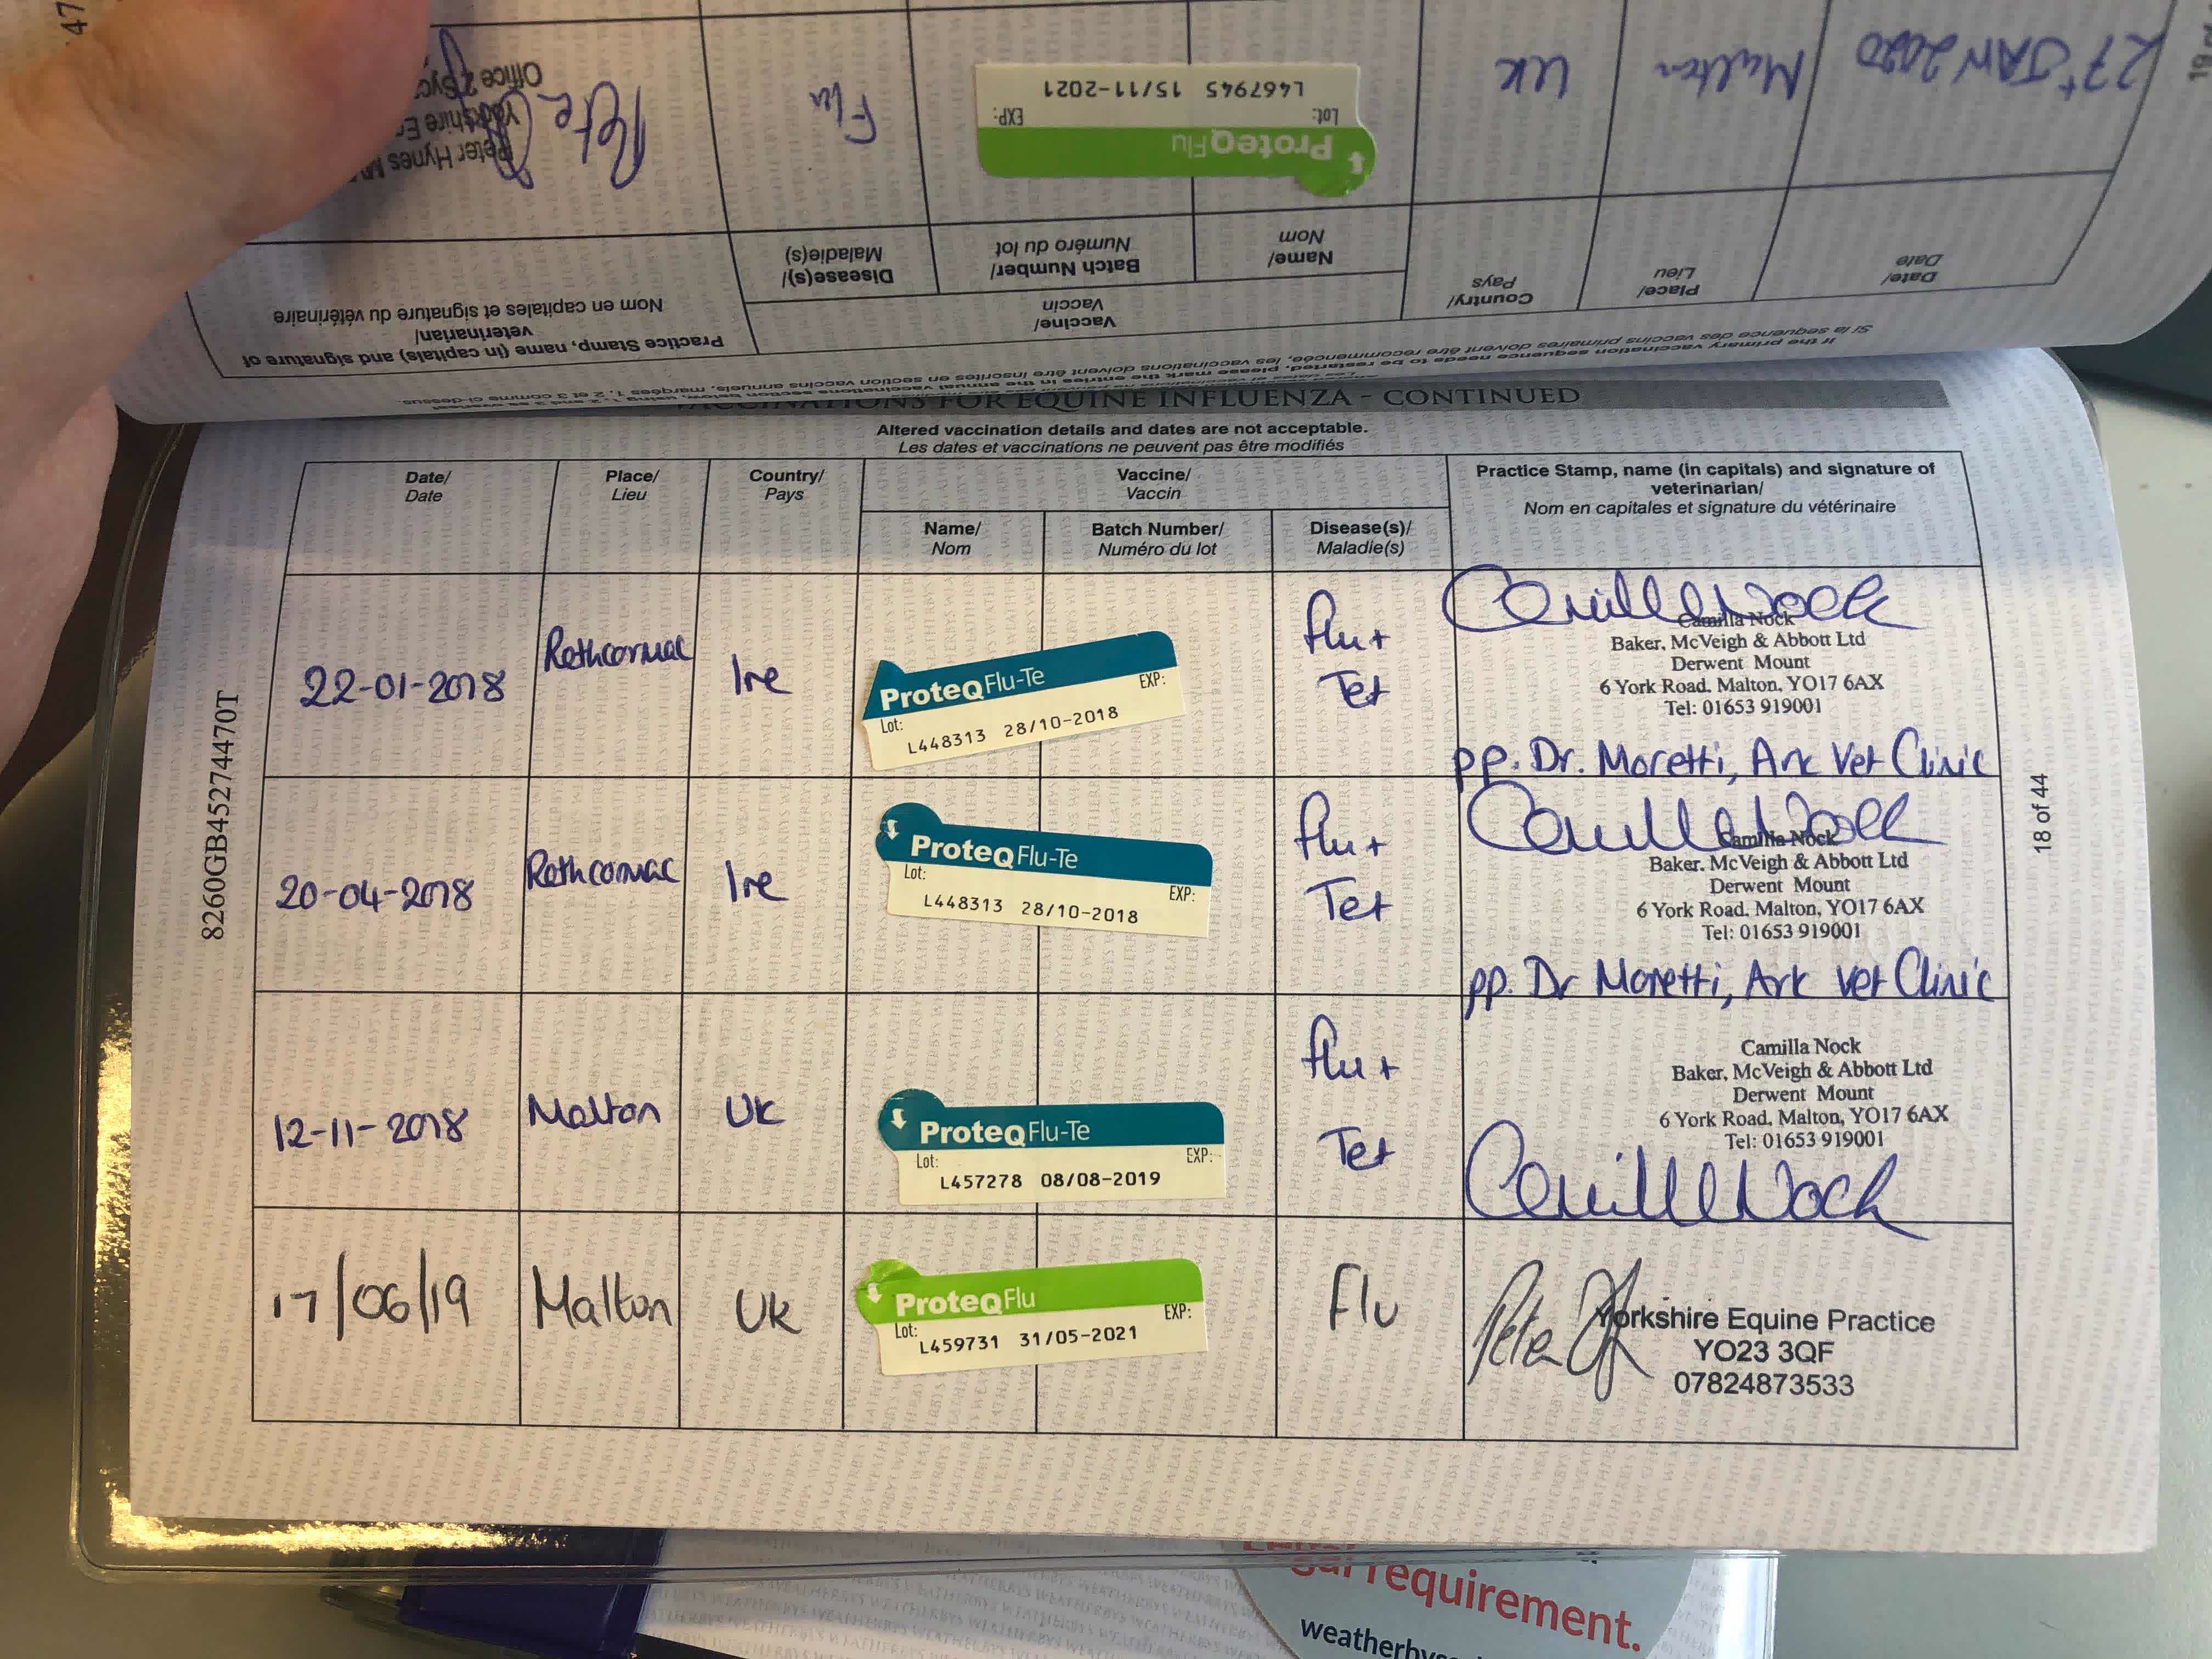 If the primary vaccination sequence needs to be restarted, please mark the entries in the annual vaccinations section below, using 1, 2 and 3 as overleaf
Si la sequence des vaccins primaires doivent être recommencée, les vaccinations doivent être inscrites en section vaccins annuels, marqées 1, 2 et 3 comme ci-dessus.
Date/
Date
Place/
Lieu
Country/
Pays
Vaccine/
Vaccin
Name/
Nom
Batch Number/
Numéro du lot
Disease(s)/
Maladie(s)
Practice Stamp, name (in capitals) and signature of
veterinarian/
Nom en capitales et signature du vétérinaire
27th JAN 2020
Malton
UK
ProteqFlu
Lot: EXP:
L467945 15/11-2021
Flu
Pete
Peter Hynes
Yorkshire
Office 2
VACCINATIONS FOR EQUINE INFLUENZA - CONTINUED
Altered vaccination details and dates are not acceptable.
Les dates et vaccinations ne peuvent pas être modifiés
Date/
Date
Place/
Lieu
Country/
Pays
Vaccine/
Vaccin
Name/
Nom
Batch Number/
Numéro du lot
Disease(s)/
Maladie(s)
Practice Stamp, name (in capitals) and signature of
veterinarian/
Nom en capitales et signature du vétérinaire
22-01-2018
Rathcormac
Ire
ProteqFlu-Te
Lot: EXP:
L448313 28/10-2018
flu +
Tet
Camilla Nock
Camilla Nock
Baker, McVeigh & Abbott Ltd
Derwent Mount
6 York Road, Malton, YO17 6AX
Tel: 01653 919001
pp. Dr. Moretti, Ark Vet Clinic
20-04-2018
Rathcormac
Ire
ProteqFlu-Te
Lot: EXP:
L448313 28/10-2018
flu +
Tet
Camilla Nock
Camilla Nock
Baker, McVeigh & Abbott Ltd
Derwent Mount
6 York Road, Malton, YO17 6AX
Tel: 01653 919001
pp. Dr Moretti, Ark Vet Clinic
12-11-2018
Malton
UK
ProteqFlu-Te
Lot: EXP:
L457278 08/08-2019
flu +
Tet
Camilla Nock
Baker, McVeigh & Abbott Ltd
Derwent Mount
6 York Road, Malton, YO17 6AX
Tel: 01653 919001
Camilla Nock
17/06/19
Malton
UK
ProteqFlu
Lot: EXP:
L459731 31/05-2021
Flu
Peter
Yorkshire Equine Practice
YO23 3QF
07824873533
8260GB45274470T
18 of 44
requirement.